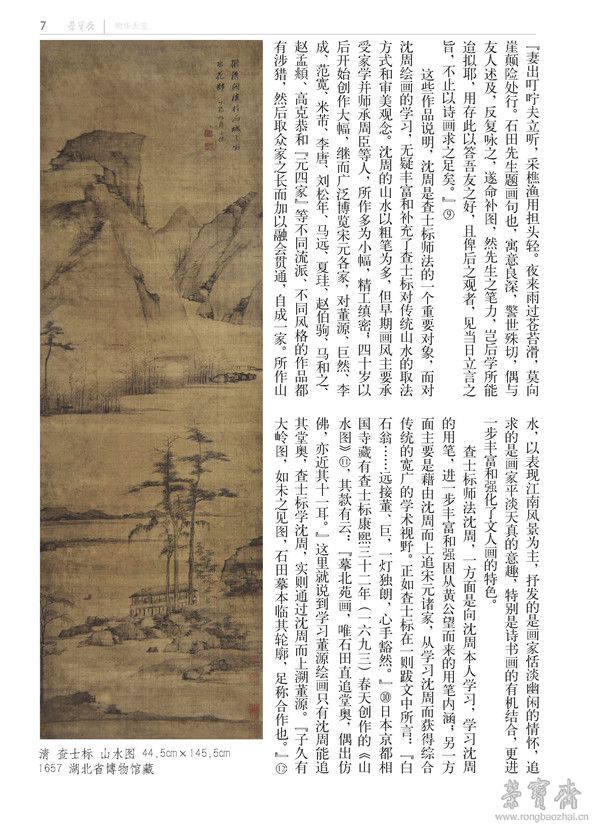 7
荣宝斋
物华天宝
『妻出叮咛夫立听，采樵渔用担头轻。夜来雨过苍苔滑，莫向
崖颠险处行。石田先生题画句也，寓意良深，警世殊切，偶与
友人述及，反复咏之，遂命补图，然先生之笔力，岂后学所能
迨拟耶，用存此以答吾友之好，且俾后之观者，见当日立言之
旨，不止以诗画求之足矣。』⑨
这些作品说明，沈周是查士标师法的一个重要对象，而对
沈周绘画的学习，无疑丰富和补充了查士标对传统山水的取法
方式和审美观念。沈周的山水以粗笔为多，但早期画风主要承
受家学并师承周臣等人，所作多为小幅，精工缜密；四十岁以
后开始创作大幅，继而广泛博览宋元各家，对董源、巨然、李
成、范宽、米芾、李唐、刘松年、马远、夏珪、赵伯驹、马和之、
赵孟頫、高克恭和『元四家』等不同流派、不同风格的作品都
有涉猎，然后取众家之长而加以融会贯通，自成一家。所作山
水，以表现江南风景为主，抒发的是画家恬淡幽闲的情怀，追
求的是画家平淡天真的意趣，特别是诗书画的有机结合，更进
一步丰富和强化了文人画的特色。
查士标师法沈周，一方面是向沈周本人学习，学习沈周
的用笔，进一步丰富和强固从黄公望而来的用笔内涵；另一方
面主要是藉由沈周而上追宋元诸家，从学习沈周而获得综合
传统的宽广的学术视野。正如查士标在一则跋文中所言：『白
石翁……远接董、巨，一灯独朗，心手豁然。』⑩日本京都相
国寺藏有查士标康熙三十二年（一六九三）春天创作的《山
水图》⑪，其款有云：『摹北苑画，唯石田直追堂奥，偶出仿
佛，亦近其十一耳。』这里就说到学习董源绘画只有沈周能追
其堂奥，查士标学沈周，实则通过沈周而上溯董源。『子久有
大岭图，如未之见图，石田摹本临其轮廓，足称合作也。』⑫
清 查士标 山水图 44.5cm×145.5cm
1657 湖北省博物馆藏
荣宝斋
www.rongbaozhai.cn